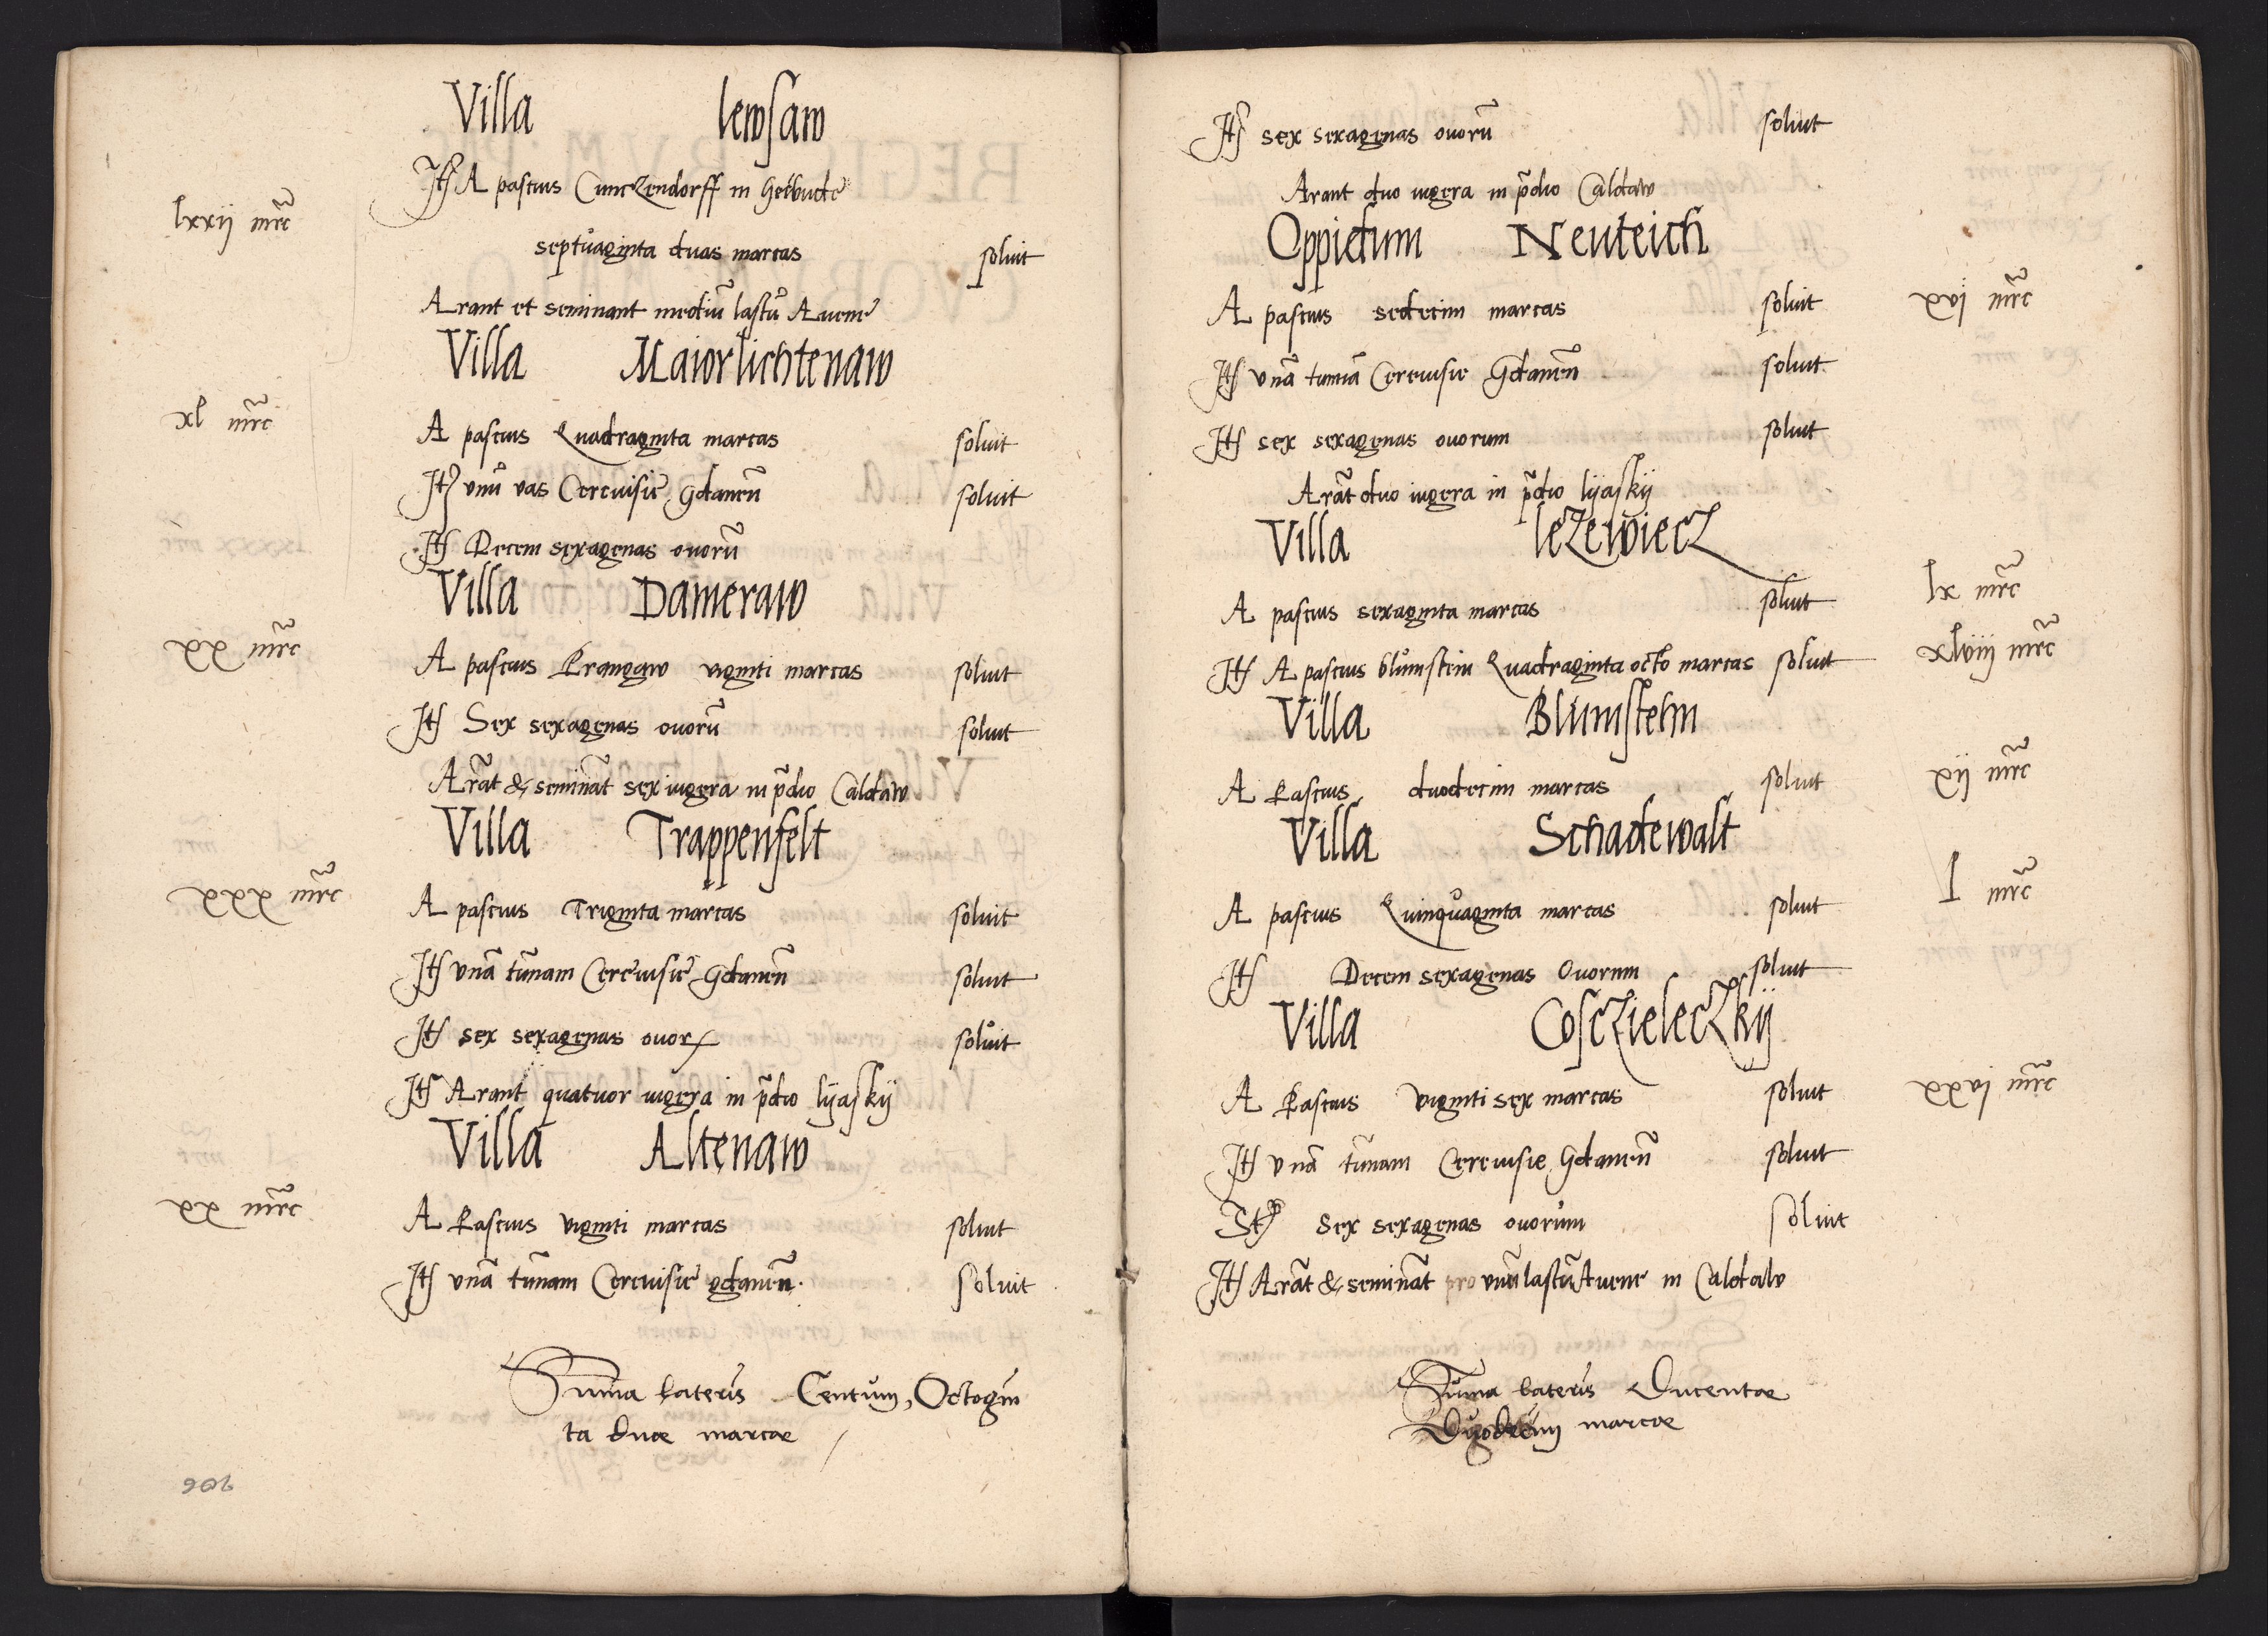 Villa lewsaw
Itē A pascuis CunczKendorff in Gerbude
lxxij mrc̃
septuaginta duas marcas soluit
Arant et seminant mediũ lastũ Auene
Villa Maiorlichtenaw
xl mrc̃ A pascuis Quadraginta marcas soluit
Itē unũ vas Cereuisie Gdanen̄ soluit
Itē Decem sexagenas ouorũ
Villa Dameraw
xx mrc̃ A pascuis Prangaw viginti marcas soluit
Itē Sex sexagenas ouorũ soluit
Arãt & seminãt sex iugera in p̃dio Caldaw
Villa Trappenfelt
xxx mrc̃ A pascuis Triginta marcas soluit
Itē vnã tũnam Cereuisie Gdanen̄ soluit
Itē sex sexagenas ouorꝝ soluit
Itē Arant quatuor iugera in p̃dio lyasky
Villa Altenaw
xx mrc̃ A Pascuis viginti marcas soluit
Itē vnã tũnam Cereuisie gdanen̄. soluit
Sum̃a lateris Centum, Octogin
ta duae marcae
906
Itē sex sexagenas ouorũ soluit
Arant duo iugera in p̃dio Caldaw
Oppidum Neuteich
A pascuis sedecim marcas soluit xvj mrc̃
Itē vnã tunnã Cereuisie Gdanen̄ soluit
Itē sex sexagenas ouorum soluit
Arãt duo iugera in p̃dio lyasky
Villa leZewiecZ
A pascuis sexaginta marcas soluit lx mrc̃
Itē A pascuis blumstein Quadraginta octo marcas soluit xlviij mrc̃
Villa Blumstein
A Pascuis duodecim marcas soluit xij mrc̃
Villa Schadewalt
A pascuis Quinquaginta marcas soluit l mrc̃
Itē Decem sexagenas Ouorum soluit
Villa CoscZielecZkij
A Pascuis viginti sex marcas soluit xxvj mrc̃
Itē vnã tũnam Cereuisie Gdanen̄ soluit
Itē Sex sexagenas ouorum soluit
Itē Arãt & seminãt pro vnũ lastũ Auene in Caldaw
Sum̃a lateris Ducentae
Duodecim marcae